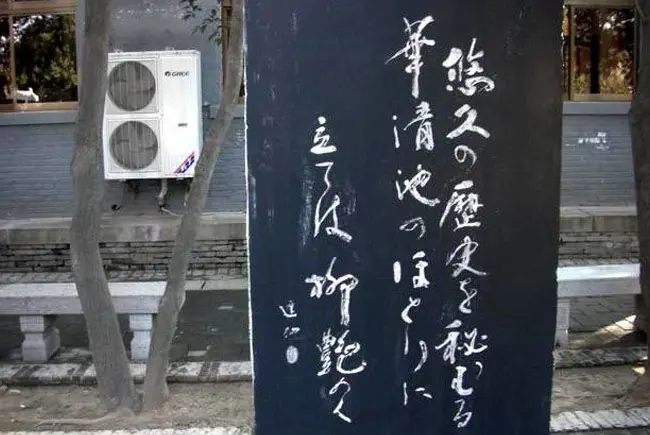 悠久の歴史を秘むる
華清池のほとりに
立ては柳艶めく
GREE